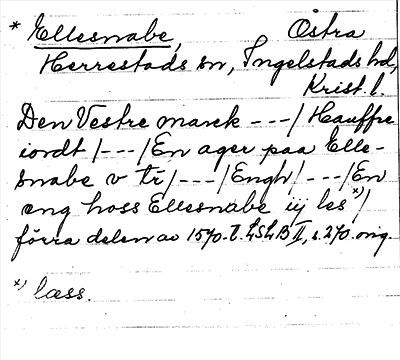 * Ellesnabe, Östra
Herrestads sn, Ingelstads hd,
Krist. l.
Den Vestre marck ---/ Hauffre
iordt /---/ En ager paa Elle-
snabe v tr̄ /---/ Engh /---/ En
eng hoss Ellesnabe iij les x)/
förra delen av 1570-t. LSLB II, s. 270. orig.
x) læss.